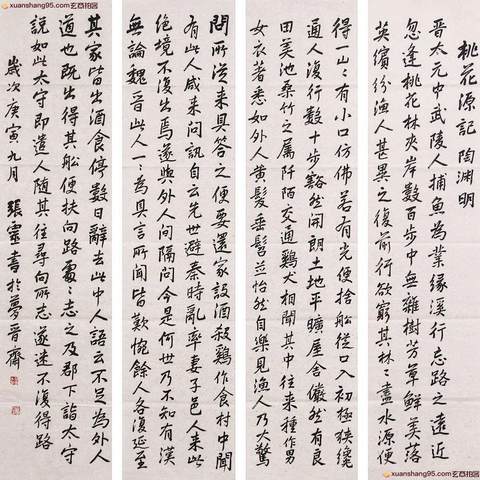 xuanshang95.com
xuanshang95.com
桃花源記 陶淵明
晉太元中武陵人捕魚為業緣溪行忘路之遠近
忽逢桃花林夾岸數百步中無雜樹芳草鮮美落
英繽紛漁人甚異之復前行欲窮其林々盡水源便
得一山々有小口仿佛若有光便捨船從口入初極狹纔
通人復行數十步豁然開朗土地平曠屋舍儼然有良
田美池桑竹之屬阡陌交通鷄犬相聞其中往来種作男
女衣著悉如外人黄髮垂髫並怡然自樂見漁人乃大驚
問所從来具答之便要還家設酒殺鷄作食村中聞
有此人咸来問訊自云先世避秦時亂率妻子邑人来此
絶境不復出焉遂與外人間隔問今是何世乃不知有漢
無論魏晉此人一々為具言所聞皆歎惋餘人各復延至
其家皆出酒食停數日辭去此中人語云不足為外人
道也既出得其船便扶向路處々志之及郡下詣太守
說如此太守即遣人隨其往尋向所志遂迷不復得路
歲次庚寅九月 張靈書於夢晉齋
xuanshang95.com